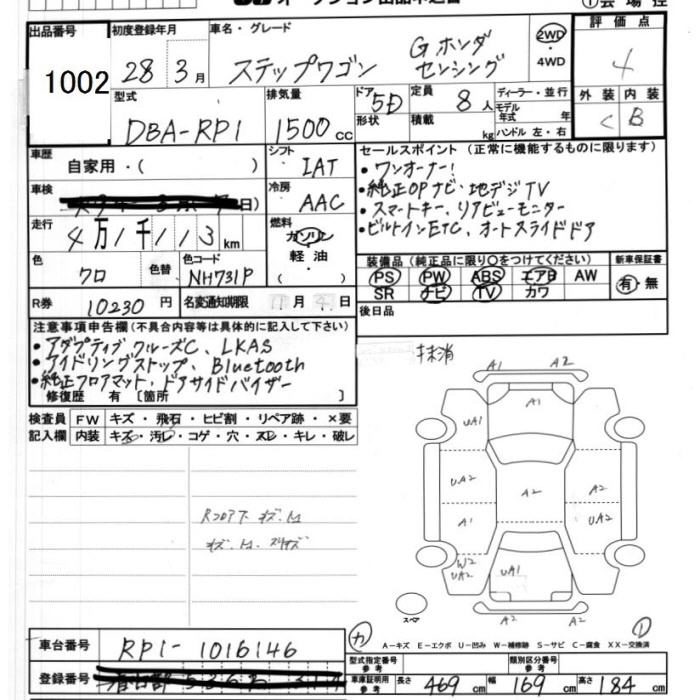 出品番号 1002
初度登録年月 28年 3月
車名・グレード ステップワゴン G ホンダセンシング
2WD・4WD
評価点 4
外装 C 内装 B
型式 DBA-RP1
排気量 1500 cc
ドア 形状 5D
定員 8 人
積載 kg
ディーラー・並行
モデル年式 年
ハンドル 左・右
車歴 自家用・( )
シフト IAT
セールスポイント (正常に機能するものに限ります)
・ワンオーナー!
・純正OPナビ・地デジTV
・スマートキー、リアビューモニター
・ビルトインETC、オートスライドドア
車検 日)
冷房 AAC
走行 4万1千113 km
燃料 ガソリン・軽油・
色 クロ 色替
色コード NH731P
装備品 (純正品に限り○をつけてください)
PS PW ABS エアB AW
SR ナビ TV カワ
新車保証書 有・無
R券 10230 円
名変通知期限 月 日
後日品
注意事項申告欄 (不具合内容等は具体的に記入して下さい)
・アダプティブクルーズC、LKAS
・アイドリングストップ、Bluetooth
・純正フロアマット・ドアサイドバイザー
修復歴 有 〔箇所 〕
抹消
検査員記入欄
FW キズ・飛石・ヒビ割・リペア跡・×要
内装 キズ・汚レ・コゲ・穴・スレ・キレ・破レ
A1 A2
A1
UA1 A1
UA2 A2 A2
A1 UA2
W2
UA2 UA1
A2 A2
スペア
車台番号 RP1-1016146
登録番号
カ
A-キズ E-エクボ U-凹み W-補修跡 S-サビ C-腐食 XX-交換済
型式指定番号 参考
類別区分番号 参考
車庫証明用 参考 長さ 469 cm 幅 169 cm 高さ 184 cm